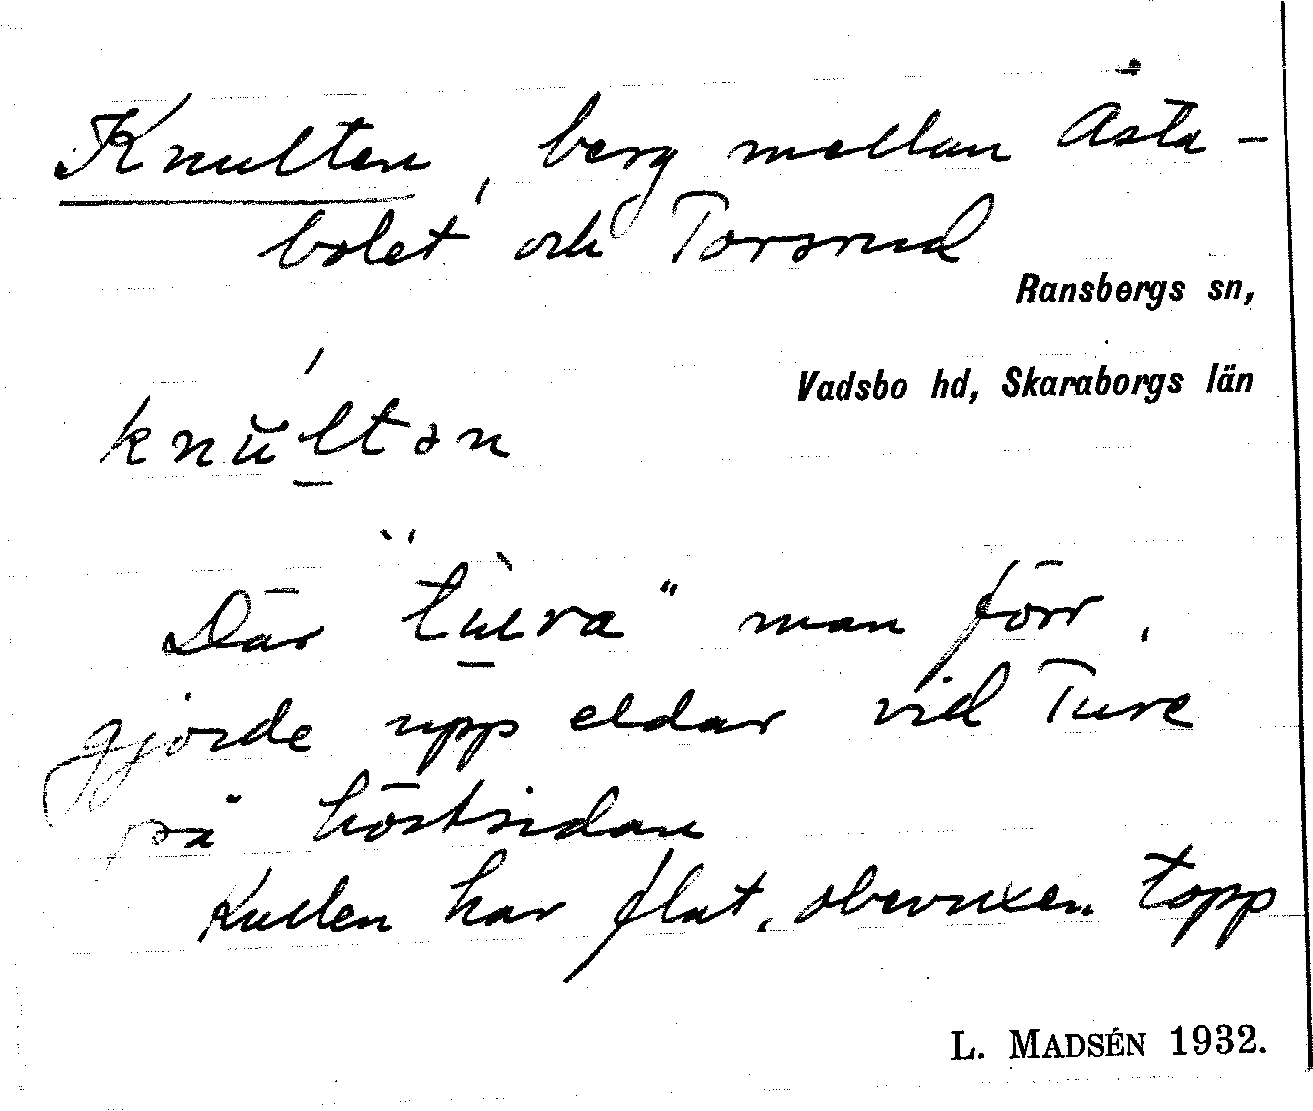 Knulten, berg mellan Åsta-
bolet och Torsrud
Ransbergs sn,
Vadsbo hd, Skaraborgs län
knúltan
Där "tùrva" man förr,
gjorde upp eldar vid Ture
på höstsidan
Kullen har flat, obevuxen topp
L. MADSÉN 1932.